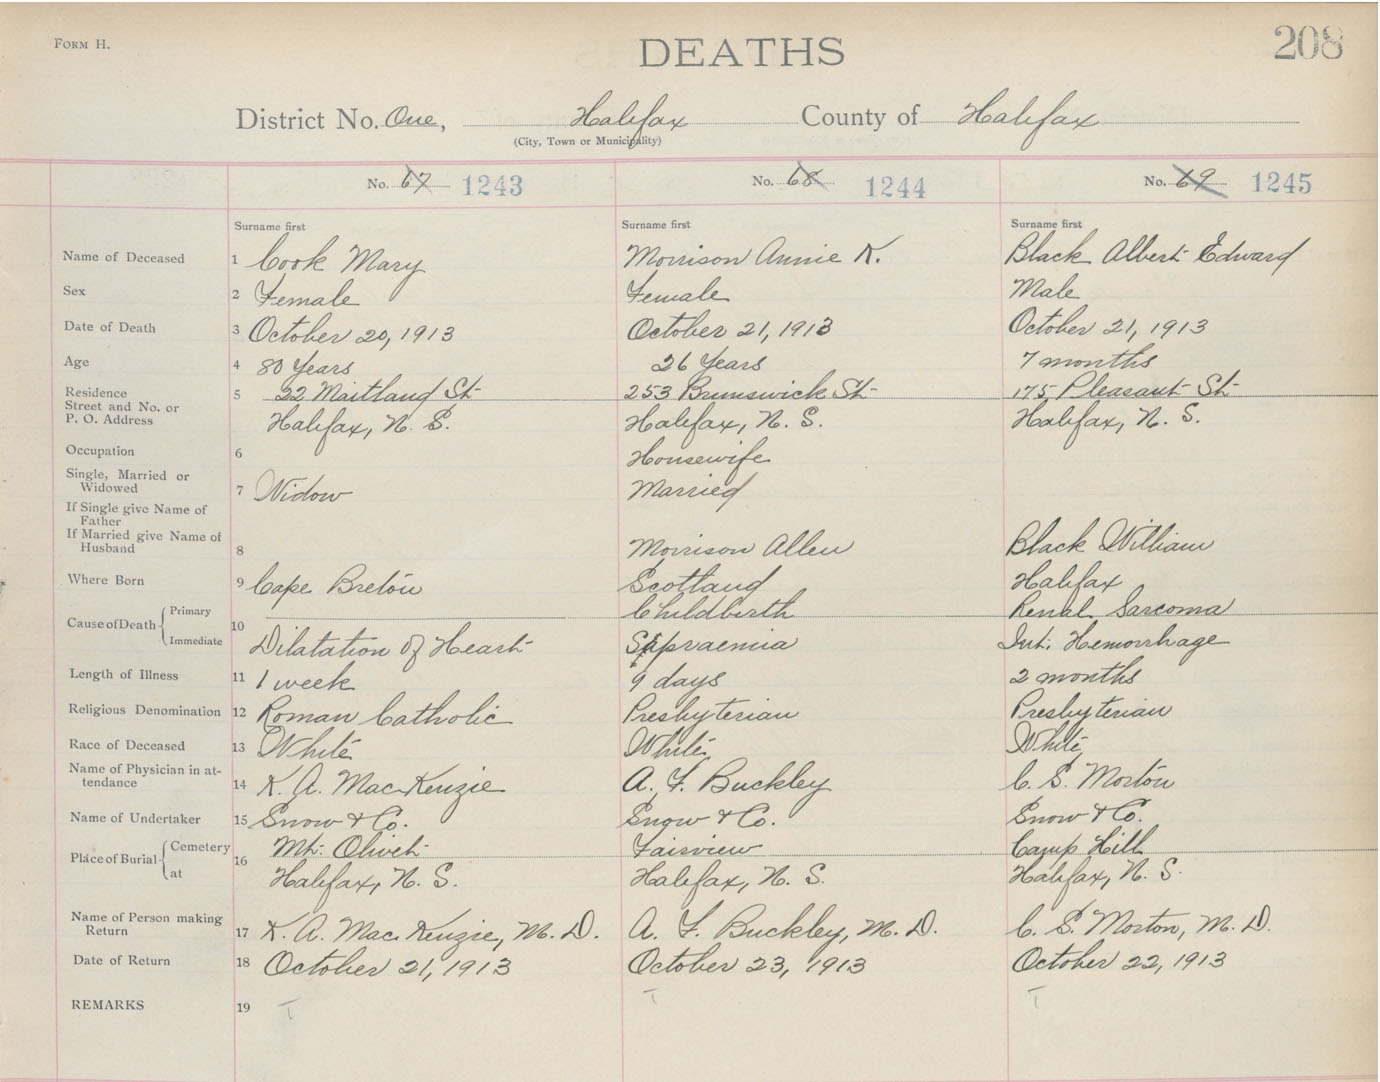 FORM H.
DEATHS
208
District No. One, Halifax County of Halifax
(City, Town or Municipality)
No. 67 1243 No. 68 1244 No. 69 1245
Surname first Surname first Surname first
Name of Deceased 1 Cook Mary Morrison Annie K. Black Albert Edward
Sex 2 Female Female Male
Date of Death 3 October 20, 1913 October 21, 1913 October 21, 1913
Age 4 80 Years 26 Years 7 months
Residence
Street and No. or 5 22 Maitland St 253 Brunswick St 175 Pleasant St
P. O. Address Halifax, N. S. Halifax, N. S. Halifax, N. S.
Occupation 6 Housewife
Single, Married or
Widowed 7 Widow Married
If Single give Name of
Father
If Married give Name of
Husband 8 Morrison Allen Black William
Where Born 9 Cape Breton Scotland Halifax
Cause of Death Primary 10 Childbirth Renal Sarcoma
Immediate Dilatation of Heart Sapraemia Int. Hemorrhage
Length of Illness 11 1 week 9 days 2 months
Religious Denomination 12 Roman Catholic Presbyterian Presbyterian
Race of Deceased 13 White White White
Name of Physician in at-
tendance 14 K. A. MacKenzie A. F. Buckley C. S. Morton
Name of Undertaker 15 Snow & Co. Snow & Co. Snow & Co.
Place of Burial Cemetery 16 Mt. Olivet Fairview Camp Hill
at Halifax, N. S. Halifax, N. S. Halifax, N. S.
Name of Person making
Return 17 K. A. MacKenzie, M. D. A. F. Buckley, M. D. C. S. Morton, M. D.
Date of Return 18 October 21, 1913 October 23, 1913 October 22, 1913
REMARKS 19 T T T